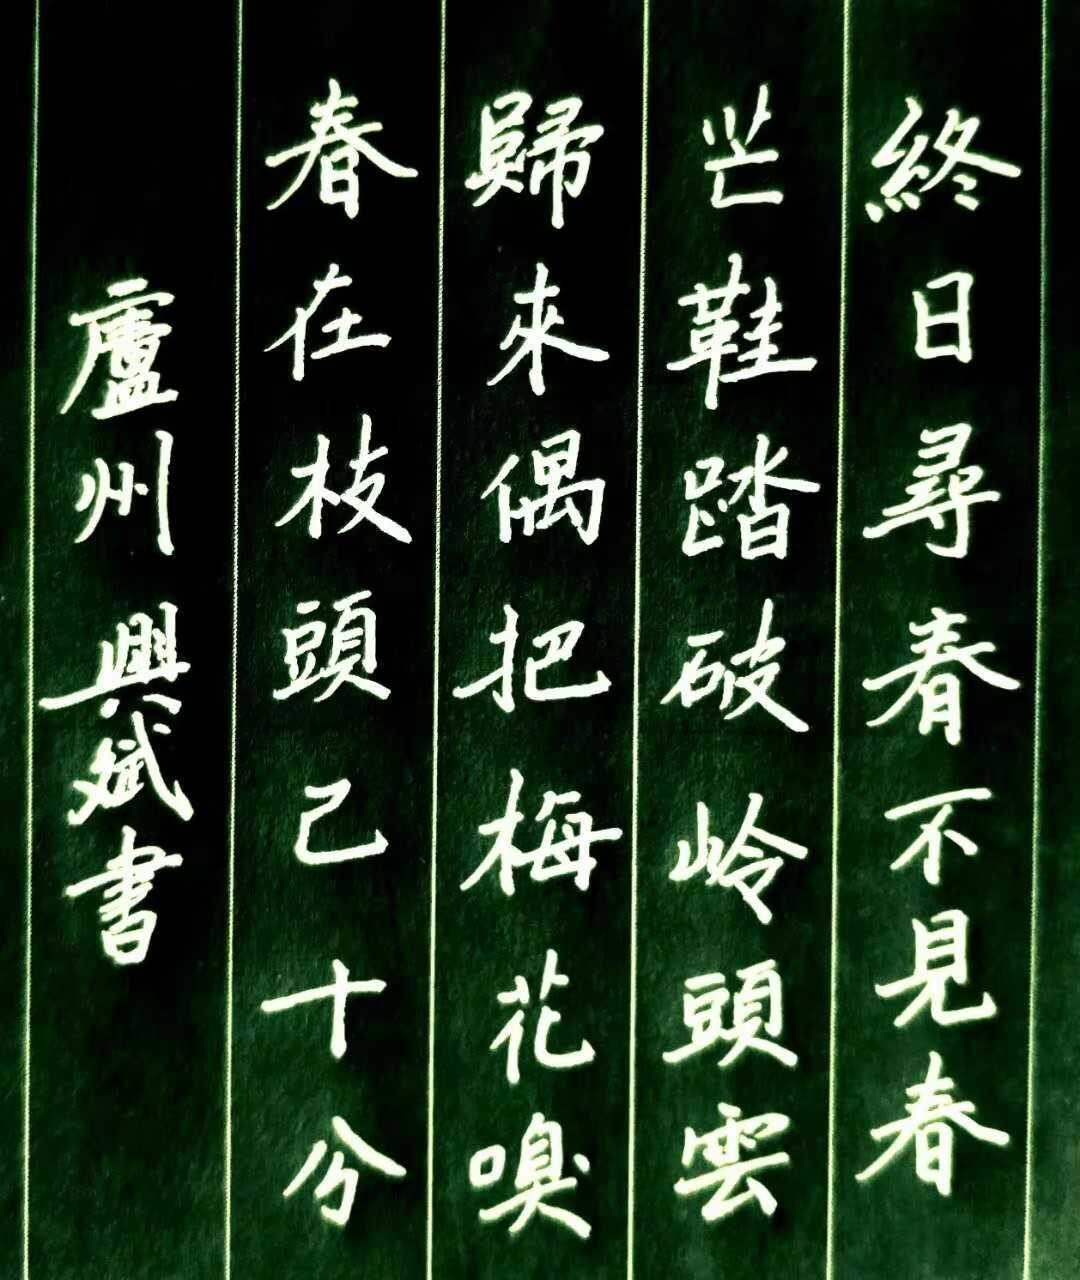 終日尋春不見春
芒鞋踏破岭頭雲
歸來偶把梅花嗅
春在枝頭已十分
廬州興斌書